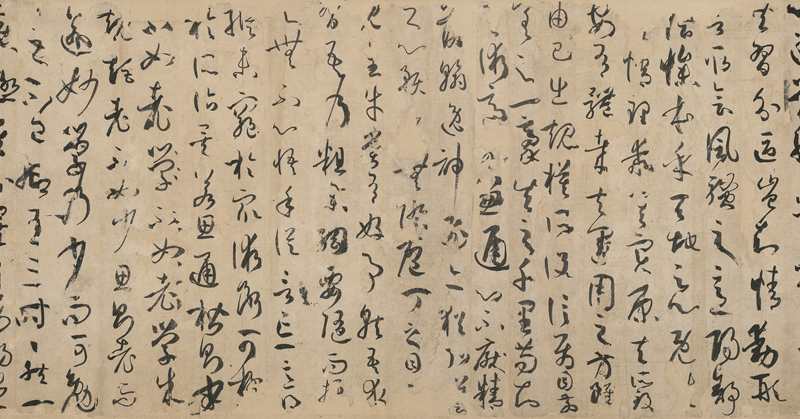 共習分區豈知情動形
言取會風騷之意陽舒
陰慘本乎天地之心既
失其情理乖其實原夫所致
安有體哉夫運用之方雖
由己出規模所設信屬目前
差之一豪失之千里苟知
其術適可兼通心不厭精
翰逸神飛亦猶弘羊之
心預乎無際庖丁之目不
見全牛嘗有好事就吾求
習吾乃粗舉綱要隨而授
之無不心悟手從言忘意得
縱未窮於眾術斷可極
於所詣矣若思通楷則少
不如老學成
規矩老不如少思則老而
逾妙學乃少而可勉
之不已抑有三時時然一